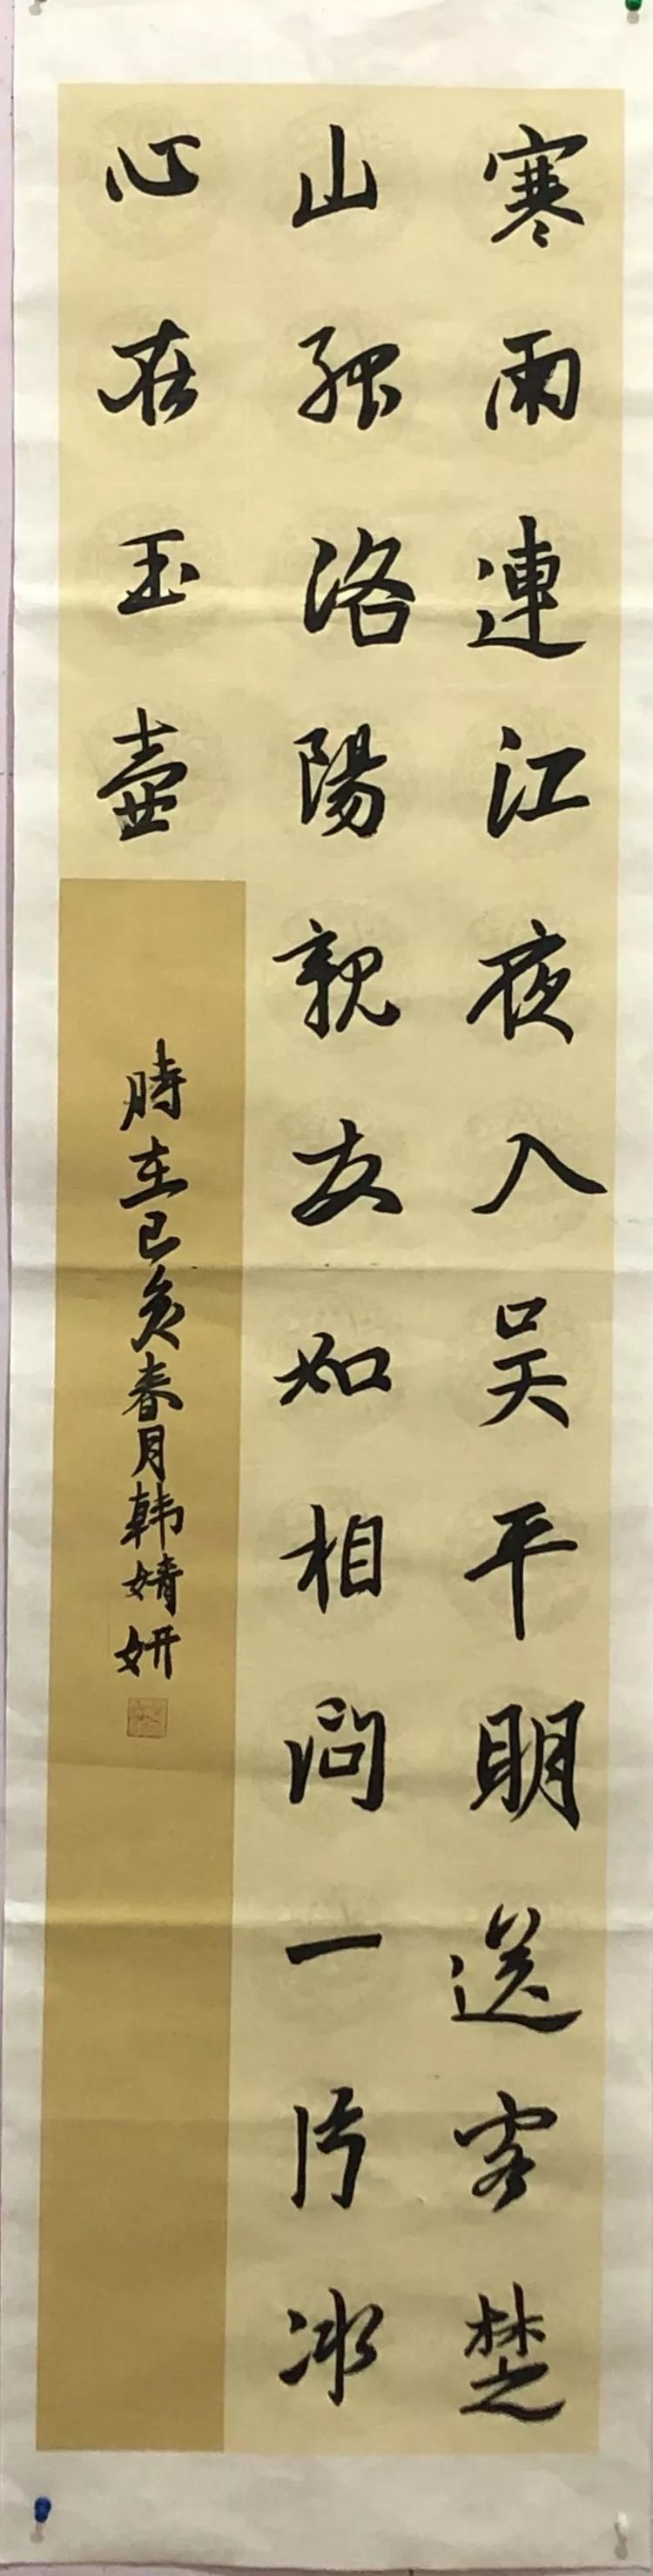 寒雨連江夜入吴平明送客楚
山孤洛陽親友如相問一片冰
心在玉壺
時在己亥春月韩婧妍